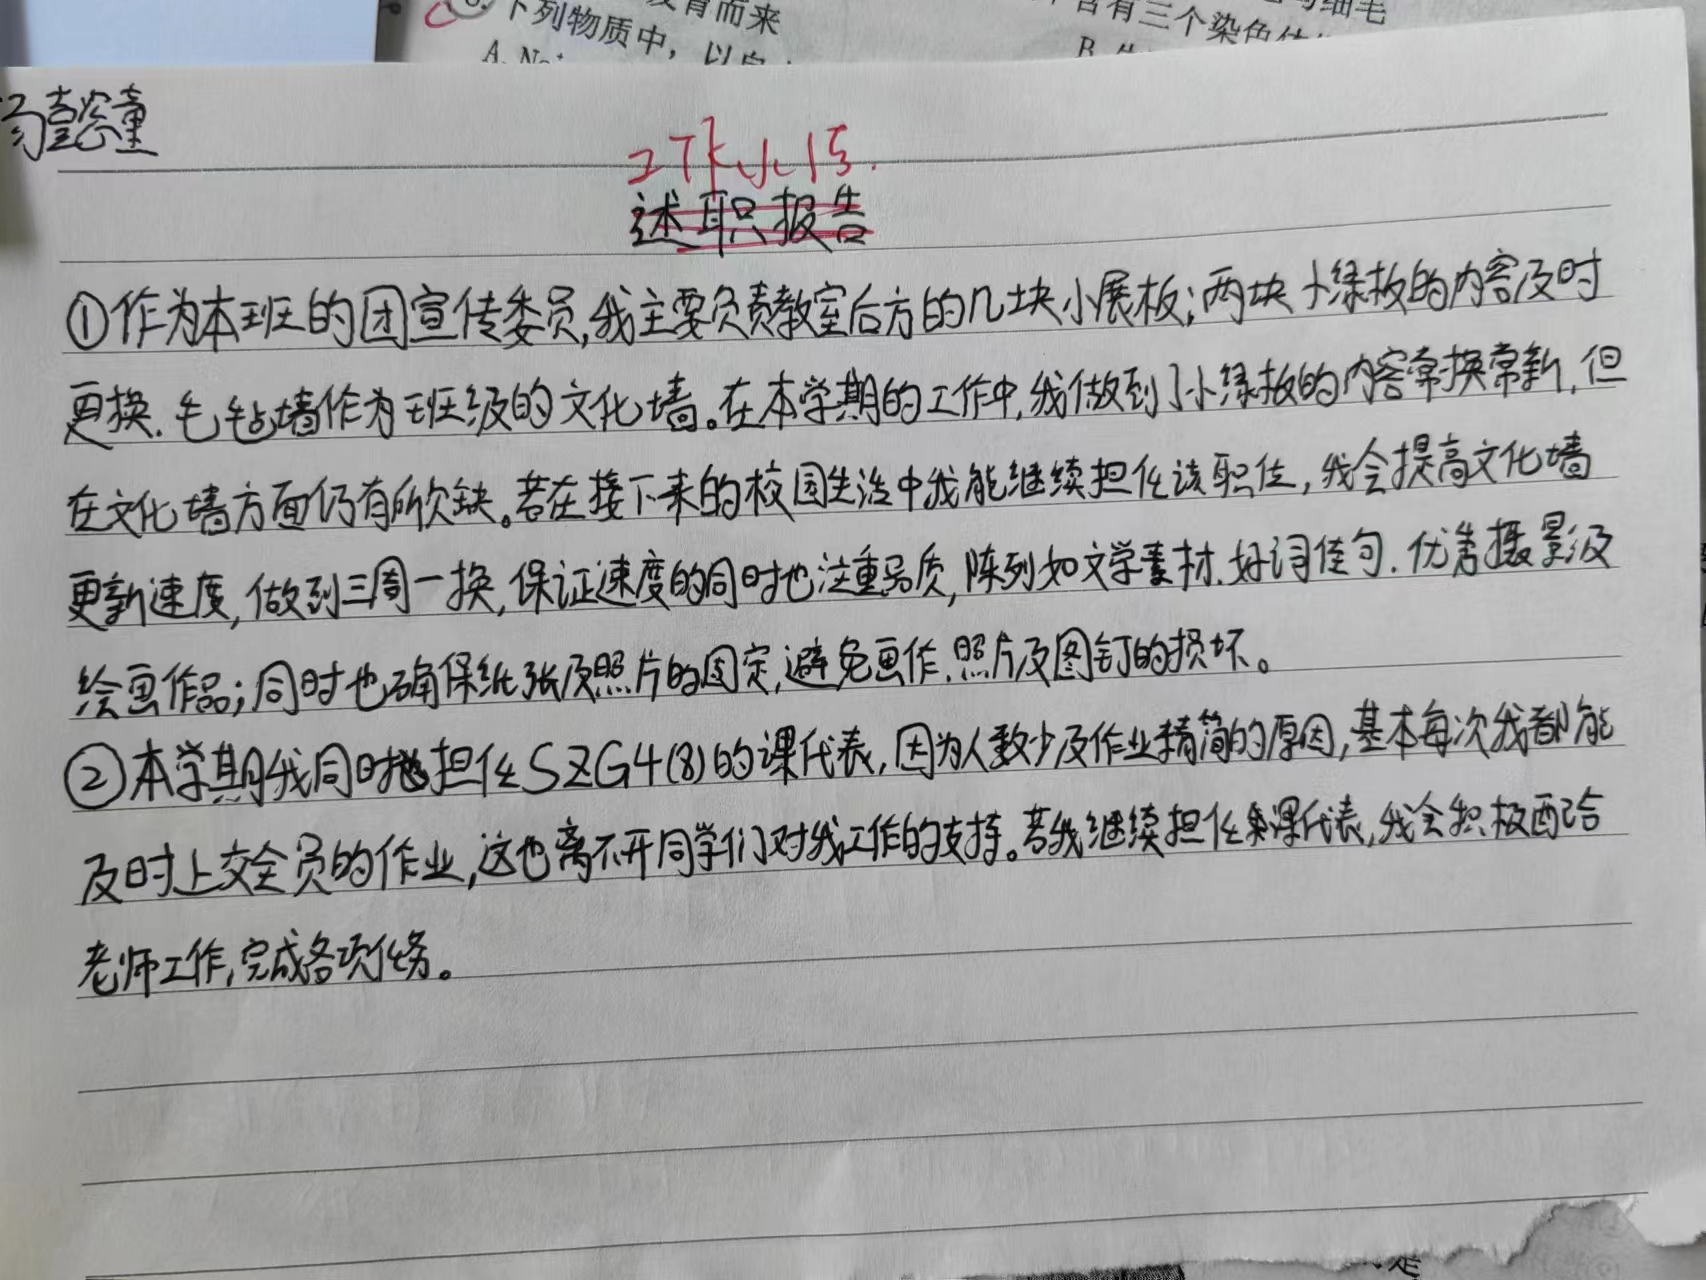 下列物质中，以
含有三个染色体
工作小结.
述职报告
①作为本班的团宣传委员,我主要负责教室后方的几块小展板;两块小绿板的内容及时
更换、毛毡墙作为班级的文化墙。在本学期的工作中,我做到了小绿板的内容常换常新,但
在文化墙方面仍有所欠缺。若在接下来的校园生活中我能继续担任该职位,我会提高文化墙
更新速度,做到三周一换,保证速度的同时也注重品质,陈列如文学素材、好词佳句、优秀摄影及
绘画作品;同时也确保纸张及照片的固定,避免画作、照片及图钉的损坏。
②本学期我同时担任SZG4(8)的课代表,因为人数少及作业精简的原因,基本每次我都能
及时上交全员的作业,这也离不开同学们对我工作的支持。若我继续担任课代表,我会积极配合
老师工作,完成各项任务。